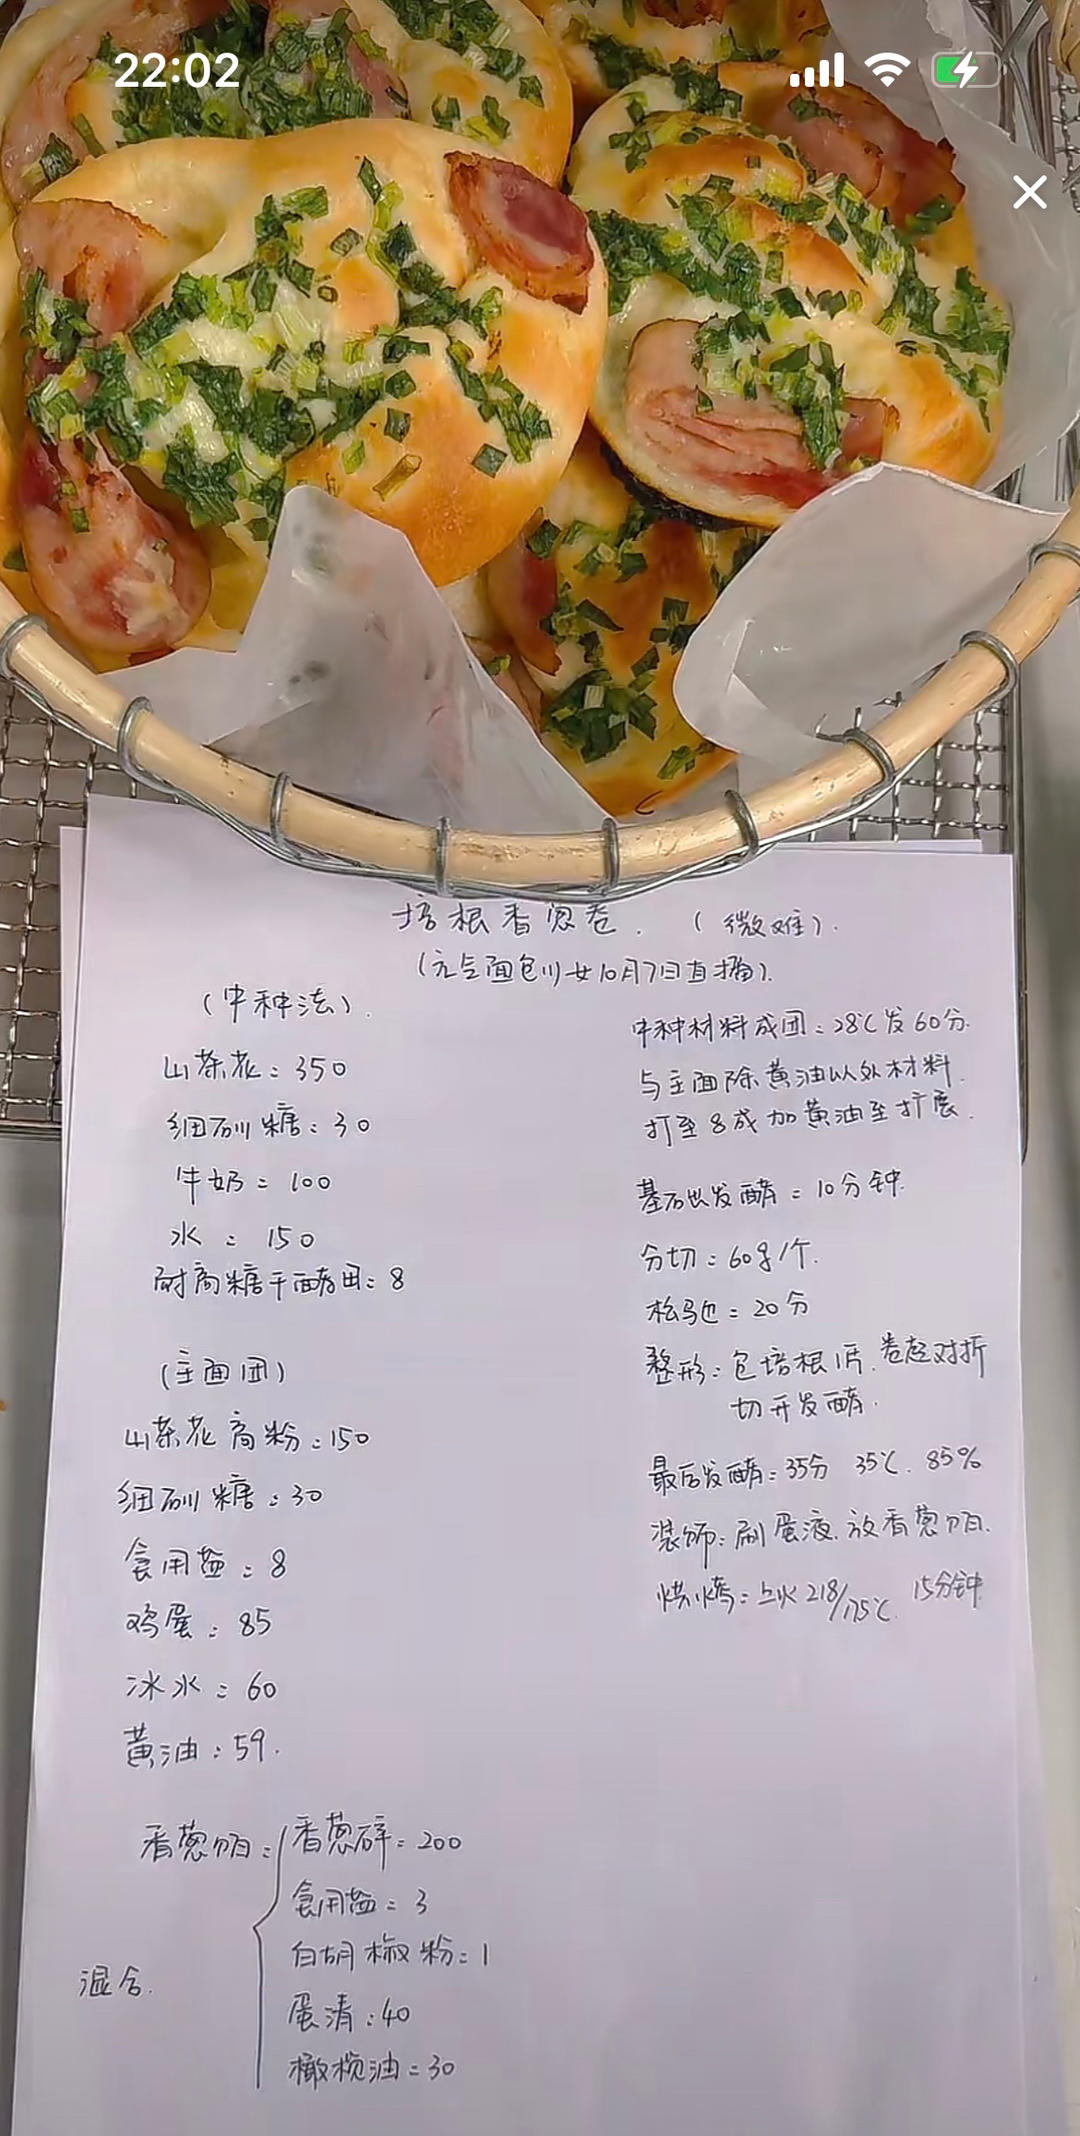 22:02
培根香葱卷.（微难）.
（元气面包少女10月7日直播）.
（中种法）.
山茶花：350
细砂糖：30
牛奶：100
水：150
耐高糖干酵母：8
（主面团）
山茶花高粉：150
细砂糖：30
食用盐：8
鸡蛋：85
冰水：60
黄油：59.
香葱明：
香葱碎：200
食用盐：3
白胡椒粉：1
蛋清：40
橄榄油：30
混合.
中种材料成团：28℃发60分.
与主面除黄油以外材料.
打至8成加黄油至扩展.
基础发酵：10分钟.
分切：60g/个.
松弛：20分
整形：包培根1片.卷起对折
切开发酵.
最后发酵：35分 35℃.85%
装饰：刷蛋液.放香葱明.
烘烤：上火218/175℃.15分钟